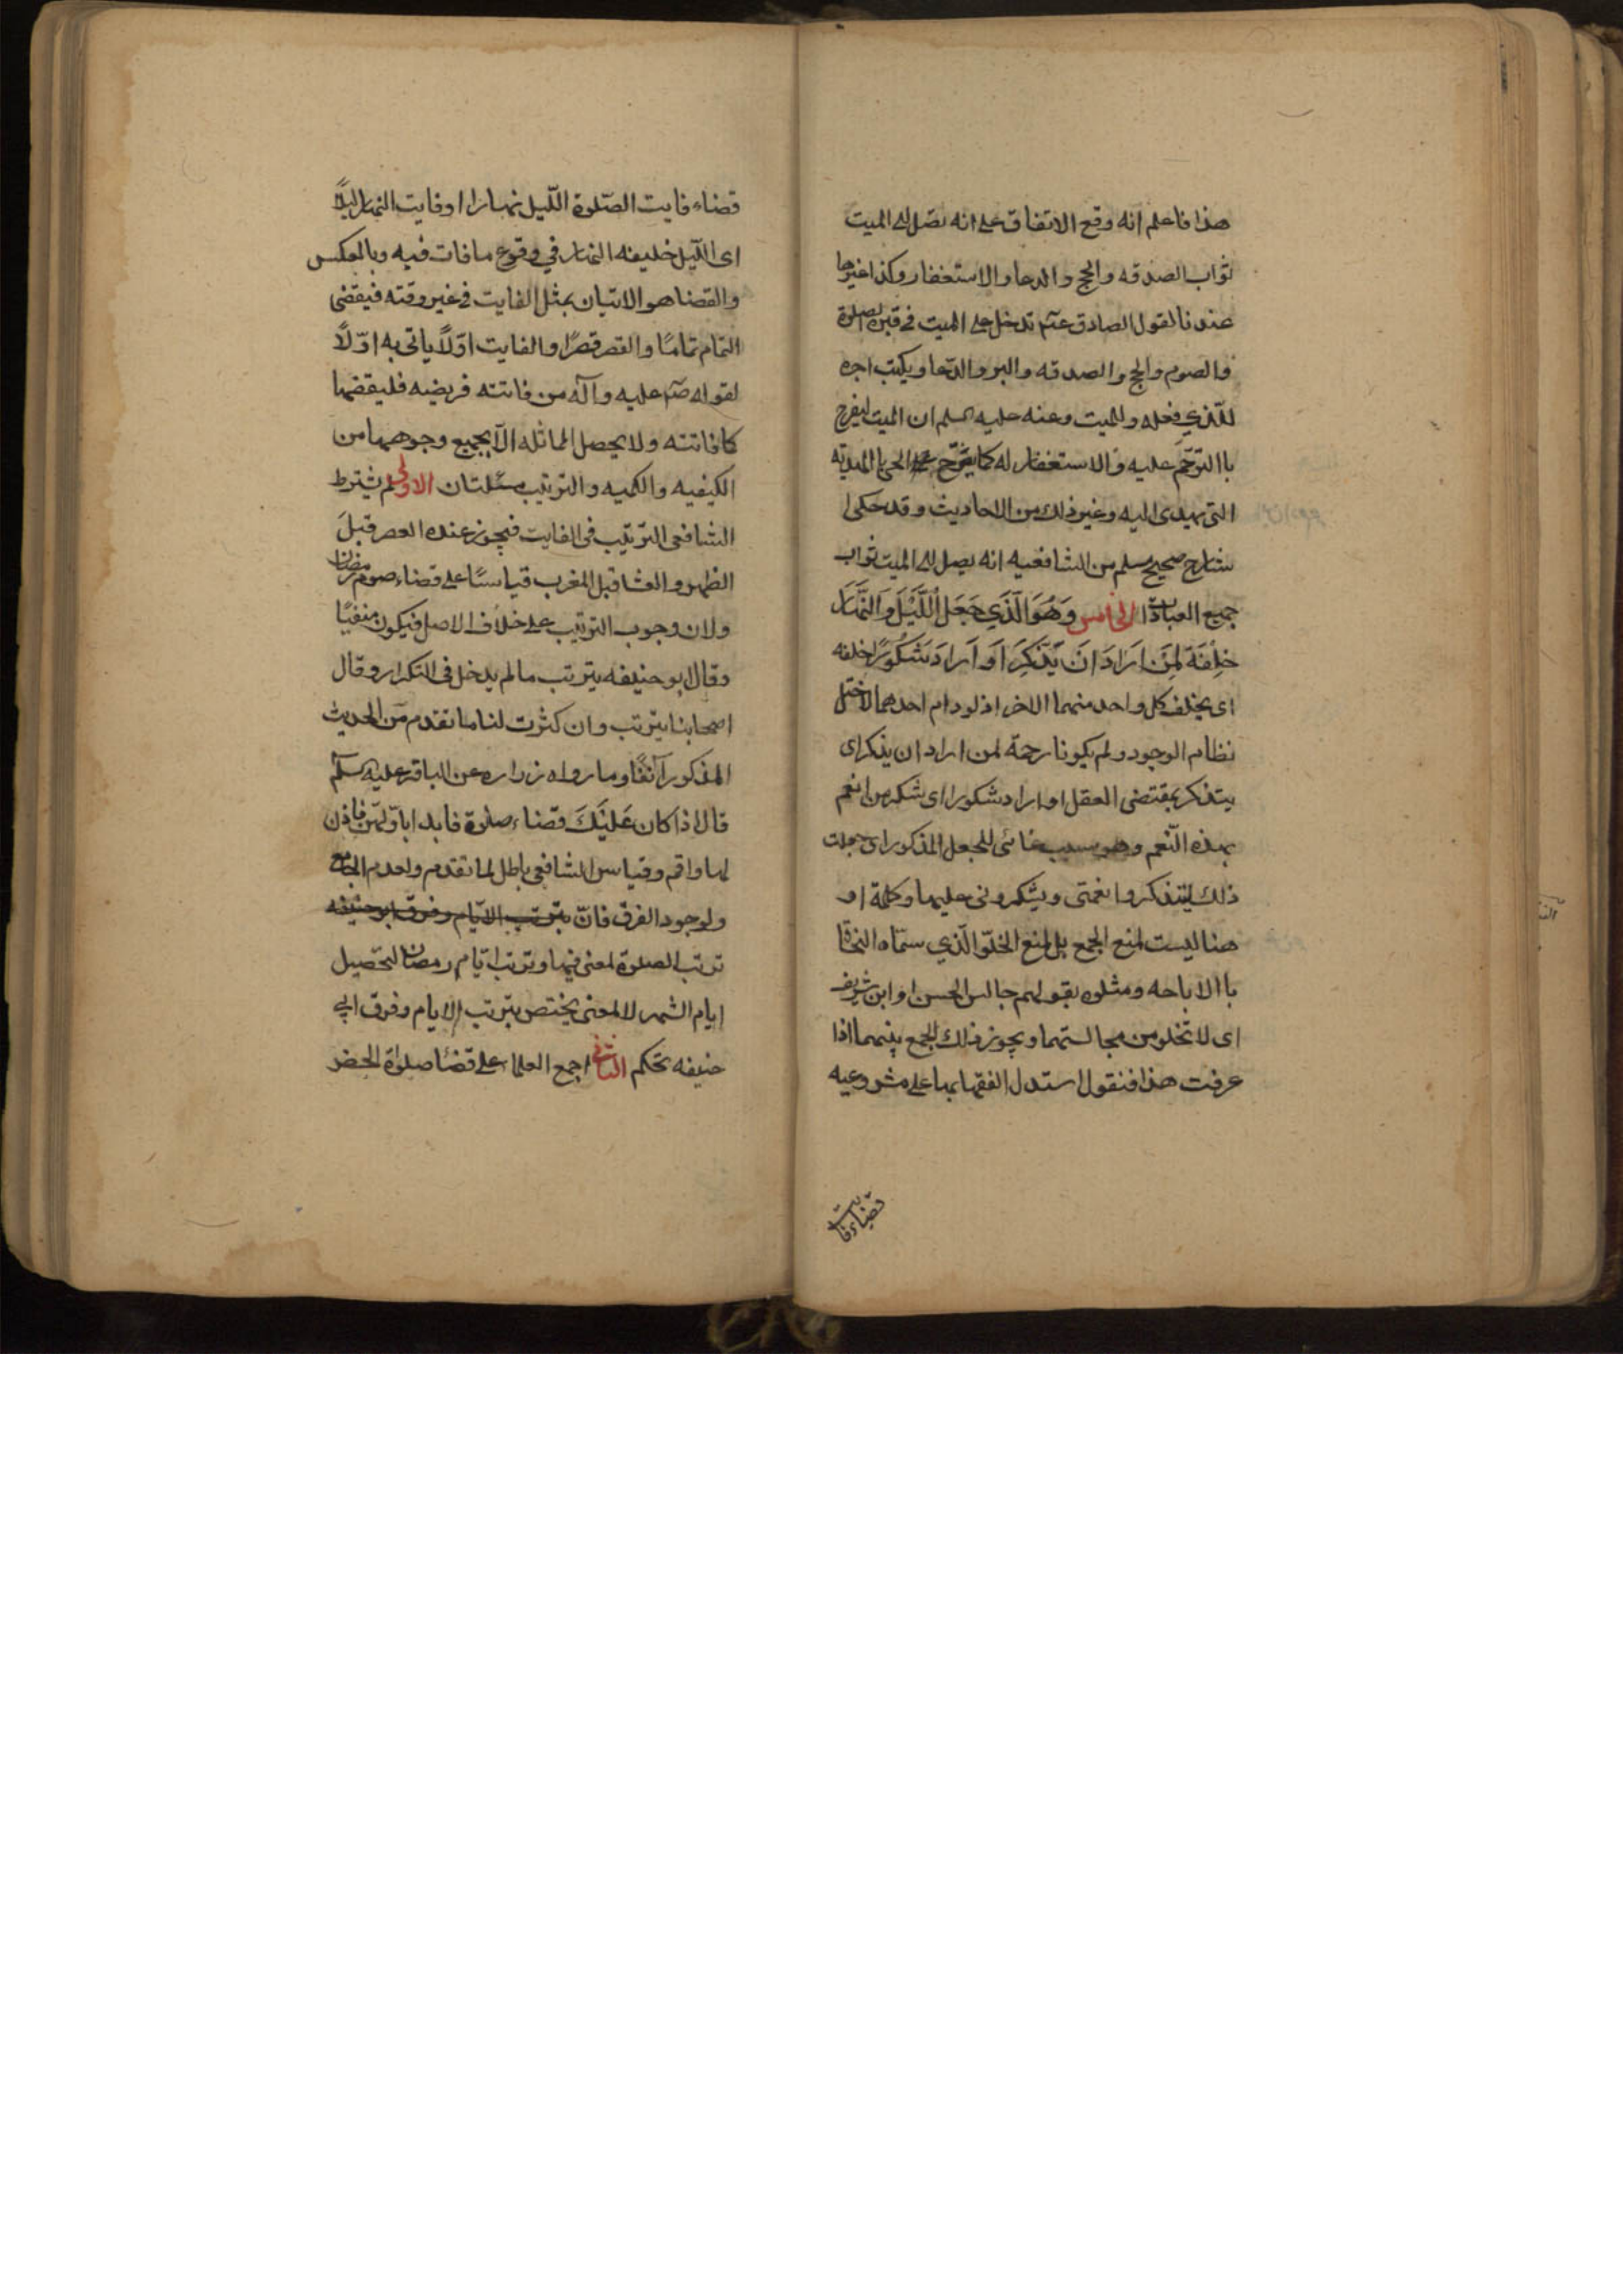 هذا فاعلم انه وقع الاتفاق على انه يصل الى الميت
ثواب الصدقه والحج والدعا والاستغفار وكذا غيرها
عندنا لقول الصادق عتم تدخل على الميت فى قبره الصلوة
والصوم والحج والصدقه والبر والدّعا ويكتب اجره
للّذي فعله وللميت وعنه عليه السلم ان الميت ليفرح
باالترّحم عليه والاستغفار له كما يفرح الحى بالهديّه
التى يهدى اليه وغير ذلك من الاحاديث وقد حكى
شارح صحيح مسلم من الشافعيه انه يصل الى الميت ثواب
جميع العبادات الخامس وَهُوَ الَّذَي جَعَلَ اللَّيْلَ وَالنَّهَار
خِلِفَةً لِمَن اَرَادَ اَن يَذَّكَرَ اَو اَرادَ شَكُورًا خلفه
اى يخلف كل واحد منهما الاخر اذ لو دام احدهما لاختل
نظام الوجود ولم يكونا رحمة لمن اراد ان يذكر اى
يتذكر بمقتضى العقل او اراد شكورا اى شكر من انعم
بهذه النّعم وهو سبب غائى للجعل المذكور اى جعلت
ذلك ليتذكروا نعمتى ويشكرونى عليها وكلمة او
هنا ليست لمنع الجمع بل لمنع الخلوّ الّذي سمّاه النحاة
باالاباحه ومثلوه بقولهم جالس الحسن او ابن
اى لا تخلو من مجالستهما ويجوز ذلك الجمع بينهما اذا
عرفت هذا فنقول استدل الفقها بها على مشروعيه
قضاء فايت
قضاء فايت الصّلوة اللّيل نهارا او فايت النهار ليلاً
اى اللّيل خليفه النهار في وقوع ما فات فيه وبالعكس
والقضا هو الاتيان بمثل الفايت فى غير وقته فيقضى
التمام تمامًا والقصر قصرًا والفايت اوّلاً ياتى به اوّلاً
لقوله صم عليه وآله من فاتته فريضه فليقضها
كما فاتته ولا يحصل المماثله الاّ بجميع وجوهها من
الكيفيه والكميه والترتيب مسئلتان الاولى لم يشترط
الشافعى الترّتيب فى الفايت فيجوز عنده العصر قبلَ
الظهر والعشا قبل المغرب قياسًا على قضاء صوم رمضان
ولان وجوب الترتيب على خلاف الاصل فيكون منفيًا
وقال ابو حنيفه يترتب ما لم يدخل فى التكرار وقال
اصحابنا يترتب وان كثرت لنا ما تقدم من الحديث
المذكور آنفًا وما رواه زراره عن الباقر عليه السلم
قال اذا كان عَلَيْكَ قضاء صلوة فابدا باوّلهن فاذن
لها واقم وقياس الشافعى باطل لما تقدم ولعدم الجامع
ولوجود الفرق فانّ بترتب الايّام وفرق ابو حنيفه
ترتب الصلوة لمعنى فيها وترتب ايّام رمضان لتحصيل
ايام الشهر لا لمعنى يختص بترتب الايام وفرق ابى
حنيفه تحكم الثانى اجمع العلما على قضا صلواة الحضر